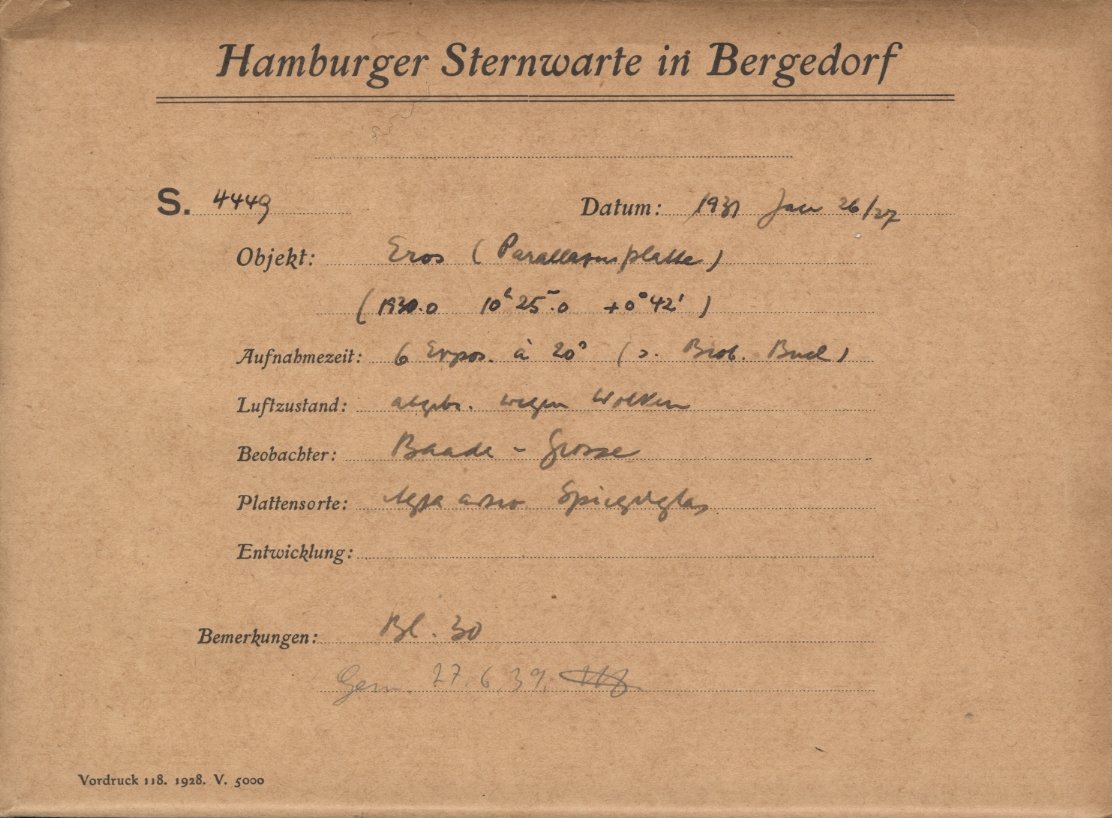 Hamburger Sternwarte in Bergedorf
S. 4449 Datum: 1931 Jan 26/27
Objekt: Eros (Parallaxenplatte)
(1930.0 10h 25m.0 +0° 42')
Aufnahmezeit: 6 Expos. à 20s (s. Beob. Buch)
Luftzustand: abgebr. wegen Wolken
Beobachter: Baade - Grosse
Plattensorte: Agfa astro. Spiegelglas
Entwicklung:
Bemerkungen: Bl. 30
Gem. 27.6.39.
Vordruck 118. 1928. V. 5000